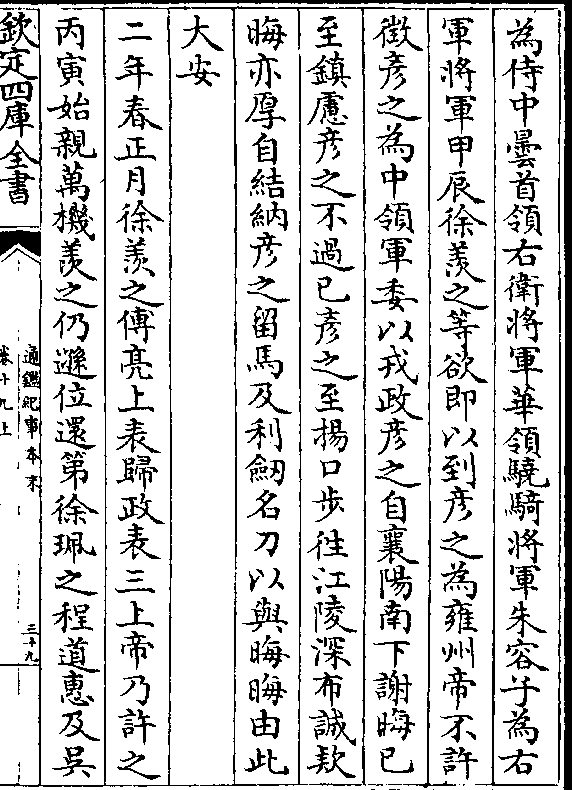 為侍中曇首領右衛將軍華領驍騎將軍朱容子為右
軍將軍甲辰徐羨之等欲即以到彥之為雍州帝不許
徴彥之為中領軍委以戎政彥之自襄陽南下謝晦已
至鎮慮彥之不過已彥之至揚口步往江陵深布誠欵
晦亦厚自結納彥之留馬及利劒名刀以與晦晦由此
大安
二年春正月徐羨之傅亮上表歸政表三上帝乃許之
丙寅始親萬機羨之仍遜位還第徐珮之程道惠及吳
欽定四庫全書
通鑑紀事本末
卷十九上
三十九